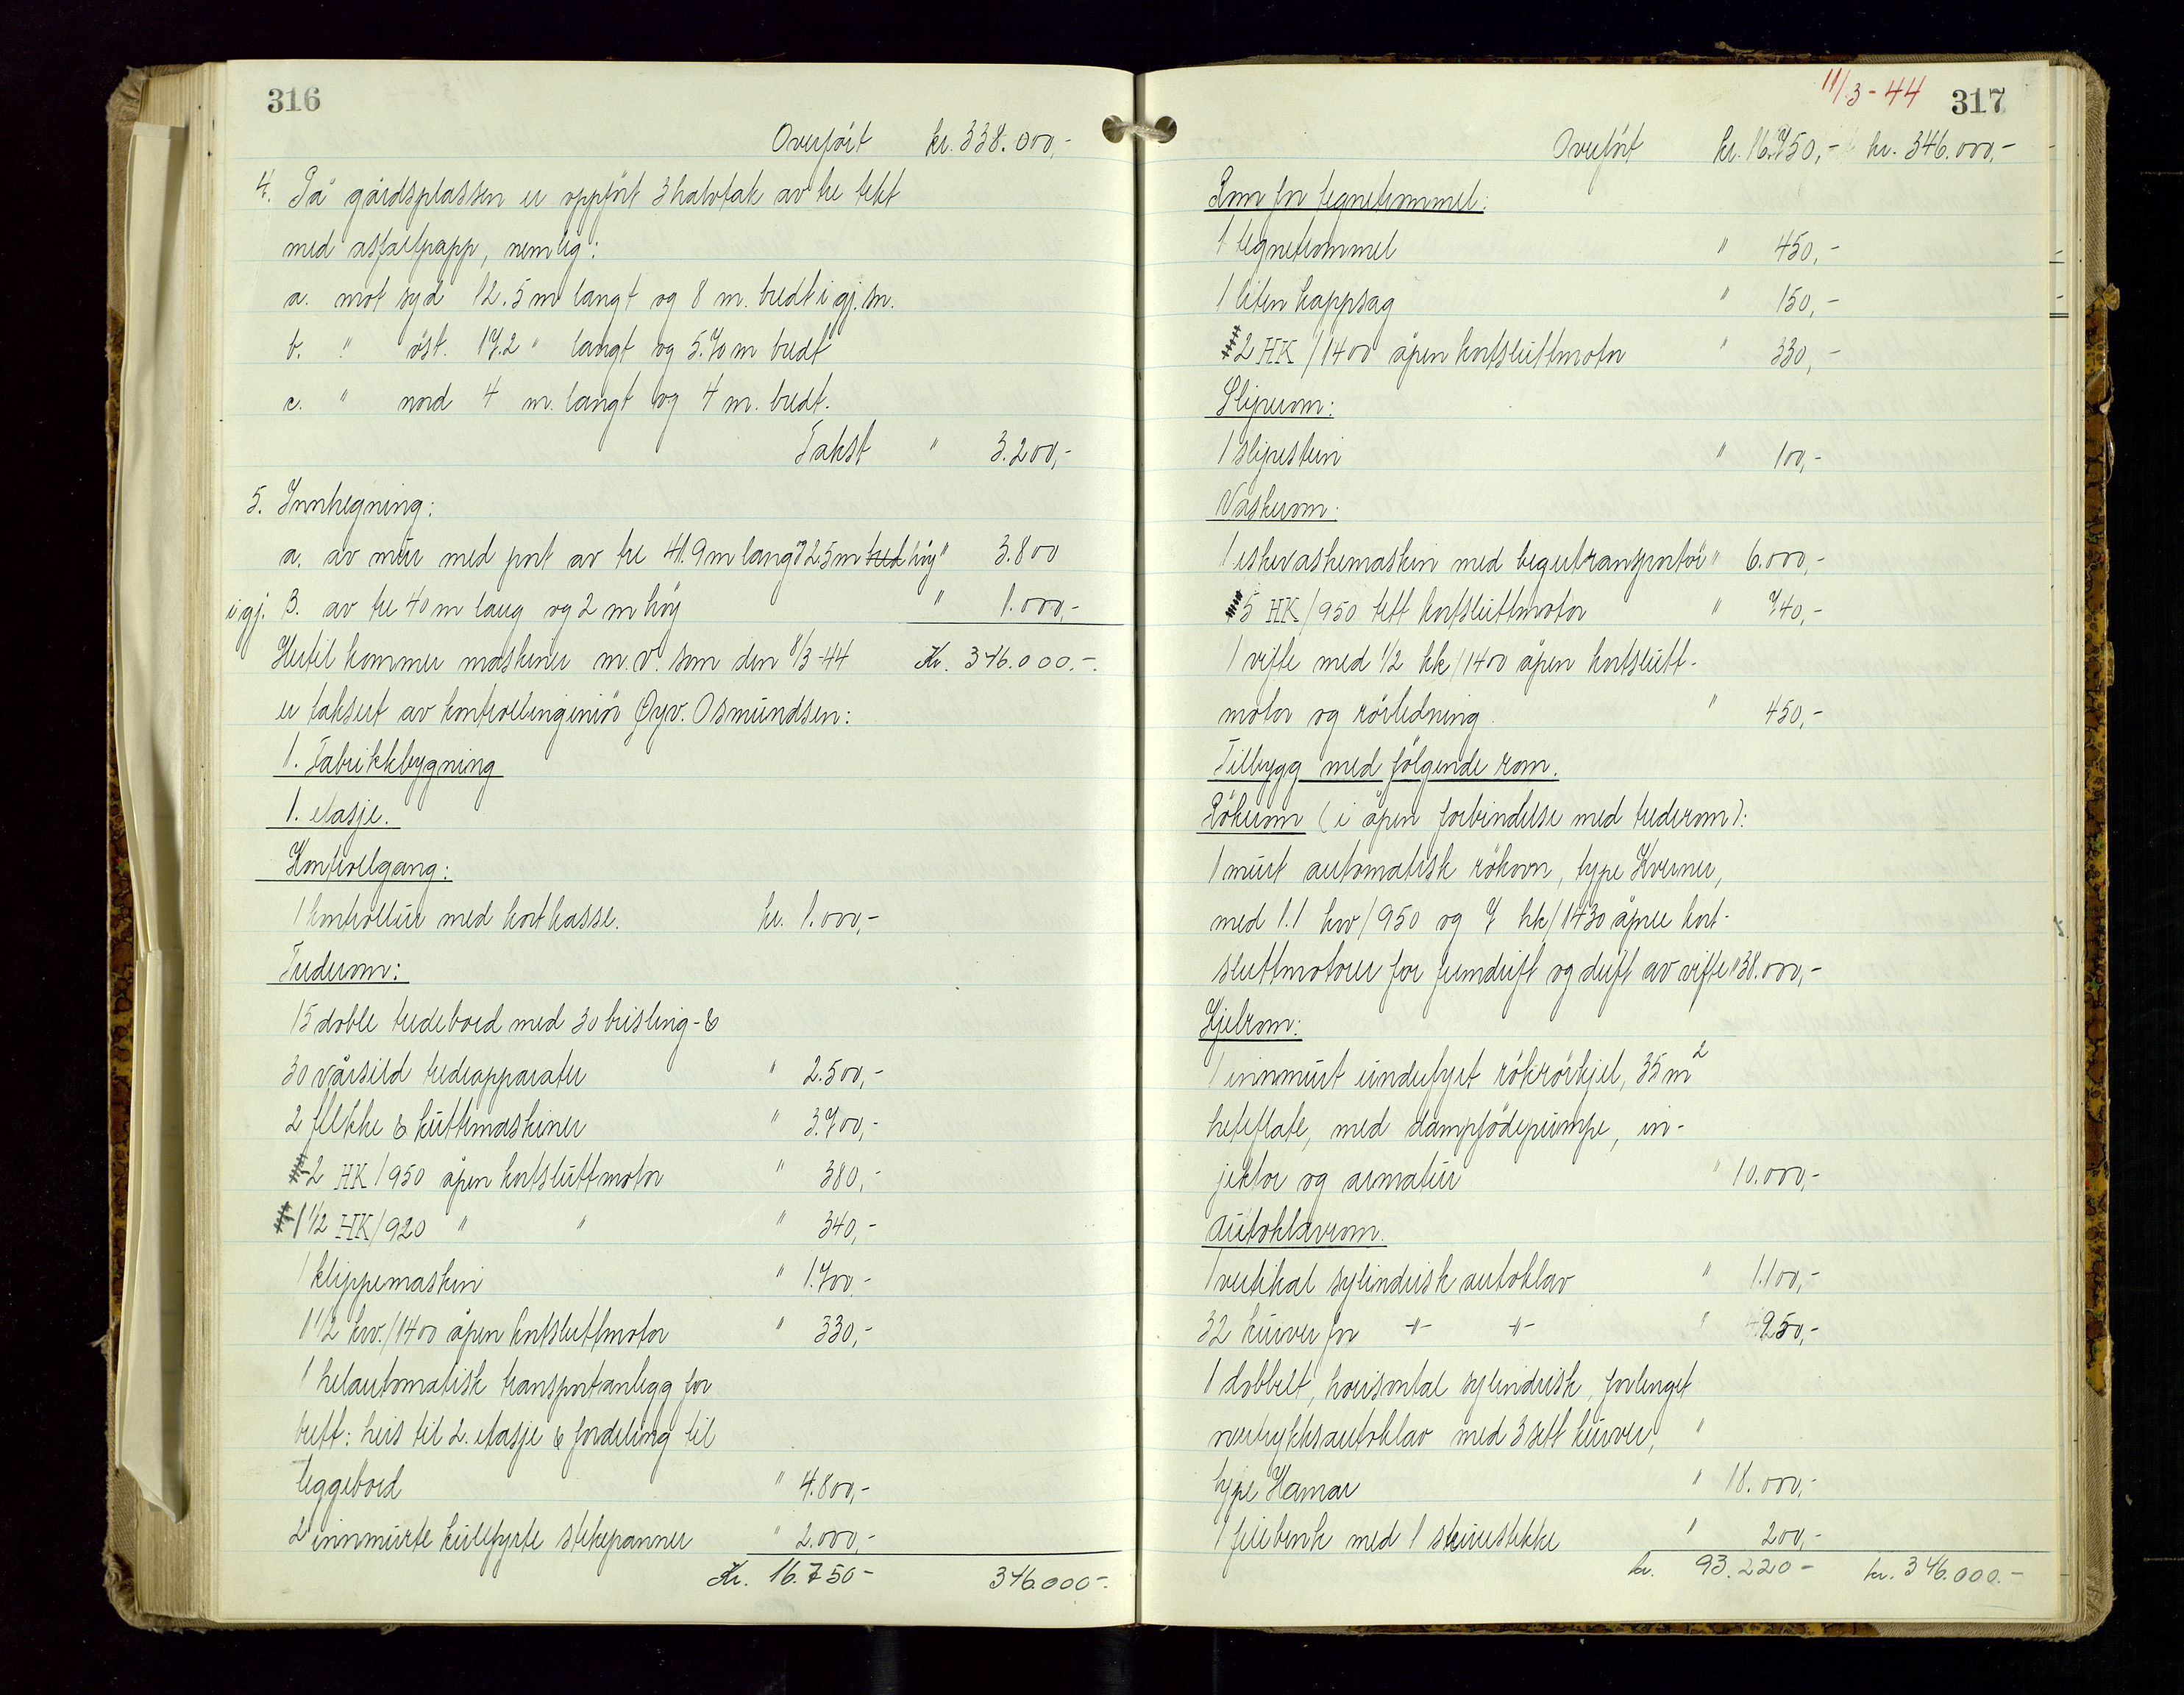 316
Overfört kr. 338.000,-
4. På gårdsplassen er oppfört 3 halvtak av tre tekt
med asfaltpapp, nemlig:
a. mot syd 12.5 m langt og 8 m. bredt i gj.sn.
b. " öst. 17.2 " langt og 5.70 m bredt
c. " nord 4 m. langt og 4 m. bredt.
Takst " 3.200,-
5. Innhegning:
a. av mur med port av tre 41.9 m lang og 2.5 m bred höy " 3.800
i gj. B. av tre 40 m lang og 2 m höy " 1.000,-
Hertil kommer maskiner m.v. som den 8/3-44 Kr. 346.000.-
er taksert av kontrollingeniör Øyv. Osmundsen:
1. Fabrikkbygning
1. etasje.
Kontrollgang:
1 kontrollur med kortkasse. kr. 1.000,-
Trederom:
15 doble tredebord med 30 brisling- &
30 vårsild tredeapparater " 2.500,-
2 flekke & kuttemaskiner " 3.700,-
2 HK/950 åpen kortsluttmotor " 380,-
1 1/2 HK/920 " " " 340,-
1 klippemaskin " 1.700,-
1 1/2 kw./1400 åpen kortsluttmotor " 330,-
1 helautomatisk transportanlegg for
brett: heis til 2. etasje & fordeling til
leggebord " 4.800,-
2 innmurte kullfyrte stekepanner " 2.000,-
Kr. 16.750- 346.000-
11/3-44 317
Overfört kr. 16.750,- kr. 346.000,-
Rom for tegnetrommel:
1 tegnetrommel " 450,-
1 liten kappsag " 150,-
2 HK/1400 åpen kortsluttmotor " 330,-
Sliperom:
1 slipestein " 100,-
Vaskerom:
1 eskevaskemaskin med begertransportör " 6.000,-
5 HK/950 tett kortsluttmotor " 740,-
1 vifte med 1/2 hk/1400 åpen kortslutt-
motor og rörledning " 450,-
Tilbygg med fölgende rom.
Rökerom (i åpen forbindelse med trederom):
1 murt automatisk rökovn, type Kverner,
med 1.1 kw/950 og 7 hk/1430 åpne kort-
sluttmotorer for fremdrift og drift av vifte " 38.000,-
Kjelrom:
1 innmurt underfyrt rökrörkjel, 35 m2
heteflate, med dampfödepumpe, in-
jektor og armatur " 10.000,-
Autoklavrom.
1 vertikal sylindrisk autoklav " 1.100,-
32 kurver for -"- -"- " 950,-
1 dobbelt, horisontal sylindrisk, forlenget
overtrykksautoklav med 3 sett kurver, "
type Hamar " 18.000,-
1 filebenk med 1 skruestikke " 200,-
kr. 93.220- kr. 346.000.-